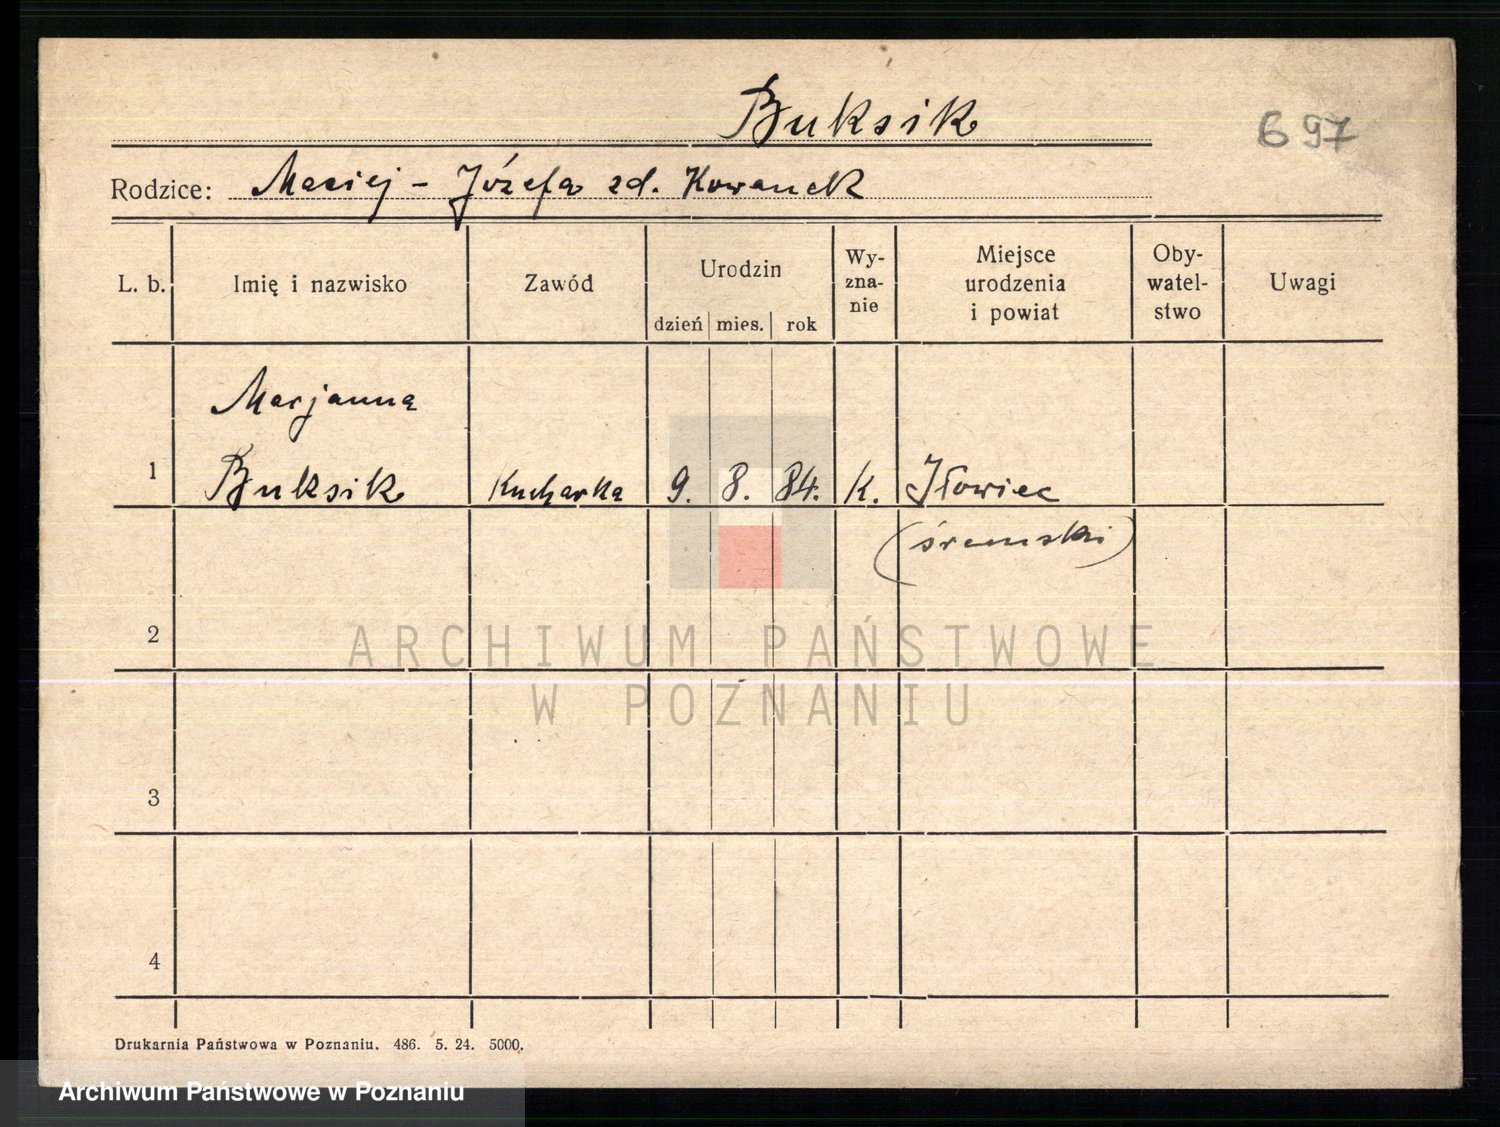 Buksik
697
Rodzice: Maciej - Józefa zd. Kowanek
L. b.
Imię i nazwisko
Zawód
Urodzin
dzień mies. rok
Wy-
zna-
nie
Miejsce
urodzenia
i powiat
Oby-
watel-
stwo
Uwagi
Marjanna
1 Buksik Kucharka 9. 8. 84. K. Iłowiec
(śremski)
2
ARCHIWUM PAŃSTWOWE
W POZNANIU
3
4
Drukarnia Państwowa w Poznaniu. 486. 5. 24. 5000.
Archiwum Państwowe w Poznaniu